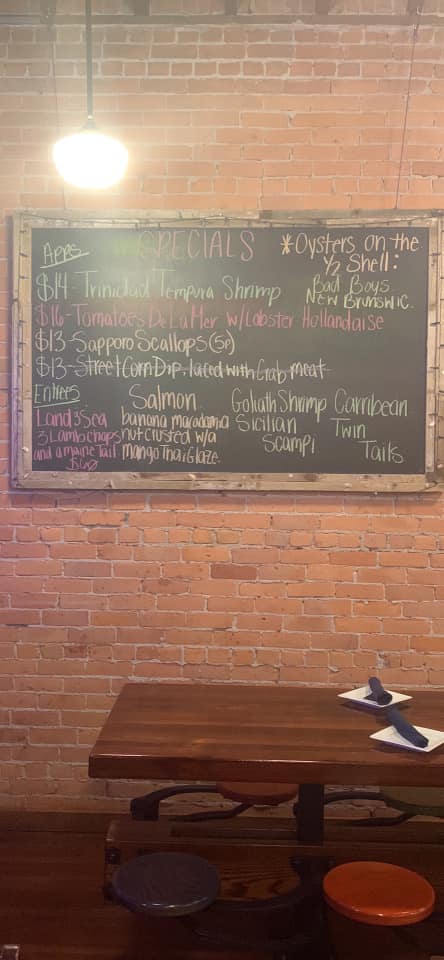 Apps
SPECIALS
*Oysters on the
1/2 Shell:
Bad Boys
New Brunswic.
$14-Trinidad Tempura Shrimp
$16-Tomatoes De La Mer w/Lobster Hollandaise
$13-Sapporo Scallops (5pc)
$13-Street Corn Dip, laced with Crab meat
Entrees
Land 3 Sea
3 Lamb chops
and a maine Tail
$60
Salmon
banana macadamia
nut crusted w/a
Mango Thai Glaze.
Goliath Shrimp
Sicilian
Scampi
Carribean
Twin
Tails